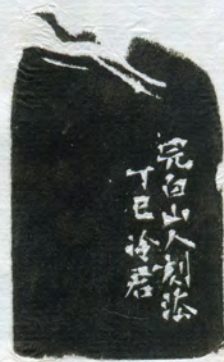 完白山人刻法
丁巳冷君